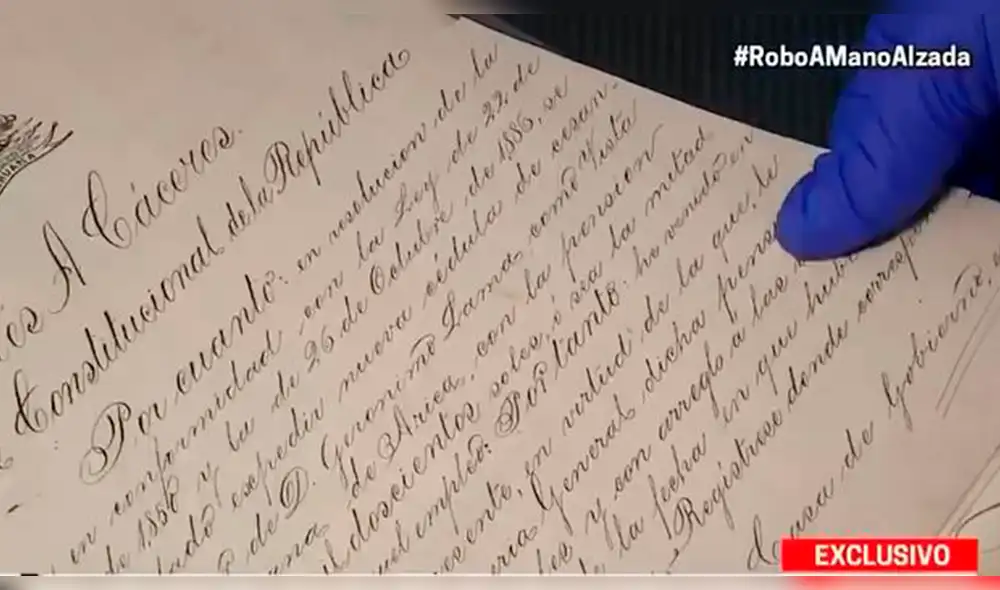 #RoboAManoAlzada
RUANA
és A Cáceres.
Constitucional de la República
Por cuanto: en resolucion de la
en conformidad con la Ley de 22 de
de 1850 y la de 26 de Octubre de 1886, se
expedir nueva cédula de cesan-
de D. Geronimo Lama, como Vista
de Arica, con la pension
doscientos soles, ó sea la mitad
empleo: Por tanto: he venido en
en virtud de la que, le
General dicha pens
y con arreglo a las
la fecha en que hubo
Registrese donde corresp
Casa de Gobierno,
EXCLUSIVO